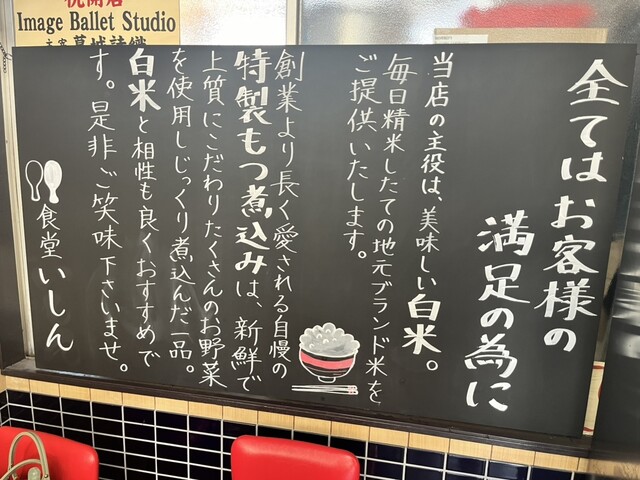 祝開店
Image Ballet Studio
全てはお客様の
満足の為に
当店の主役は、美味しい白米。
毎日精米したての地元ブランド米を
ご提供いたします。
創業より長く愛される自慢の
特製もつ煮込みは、新鮮で
上質にこだわりたくさんのお野菜
を使用しじっくり煮込んだ一品。
白米と相性も良くおすすめで
す。是非ご笑味下さいませ。
食堂いしん